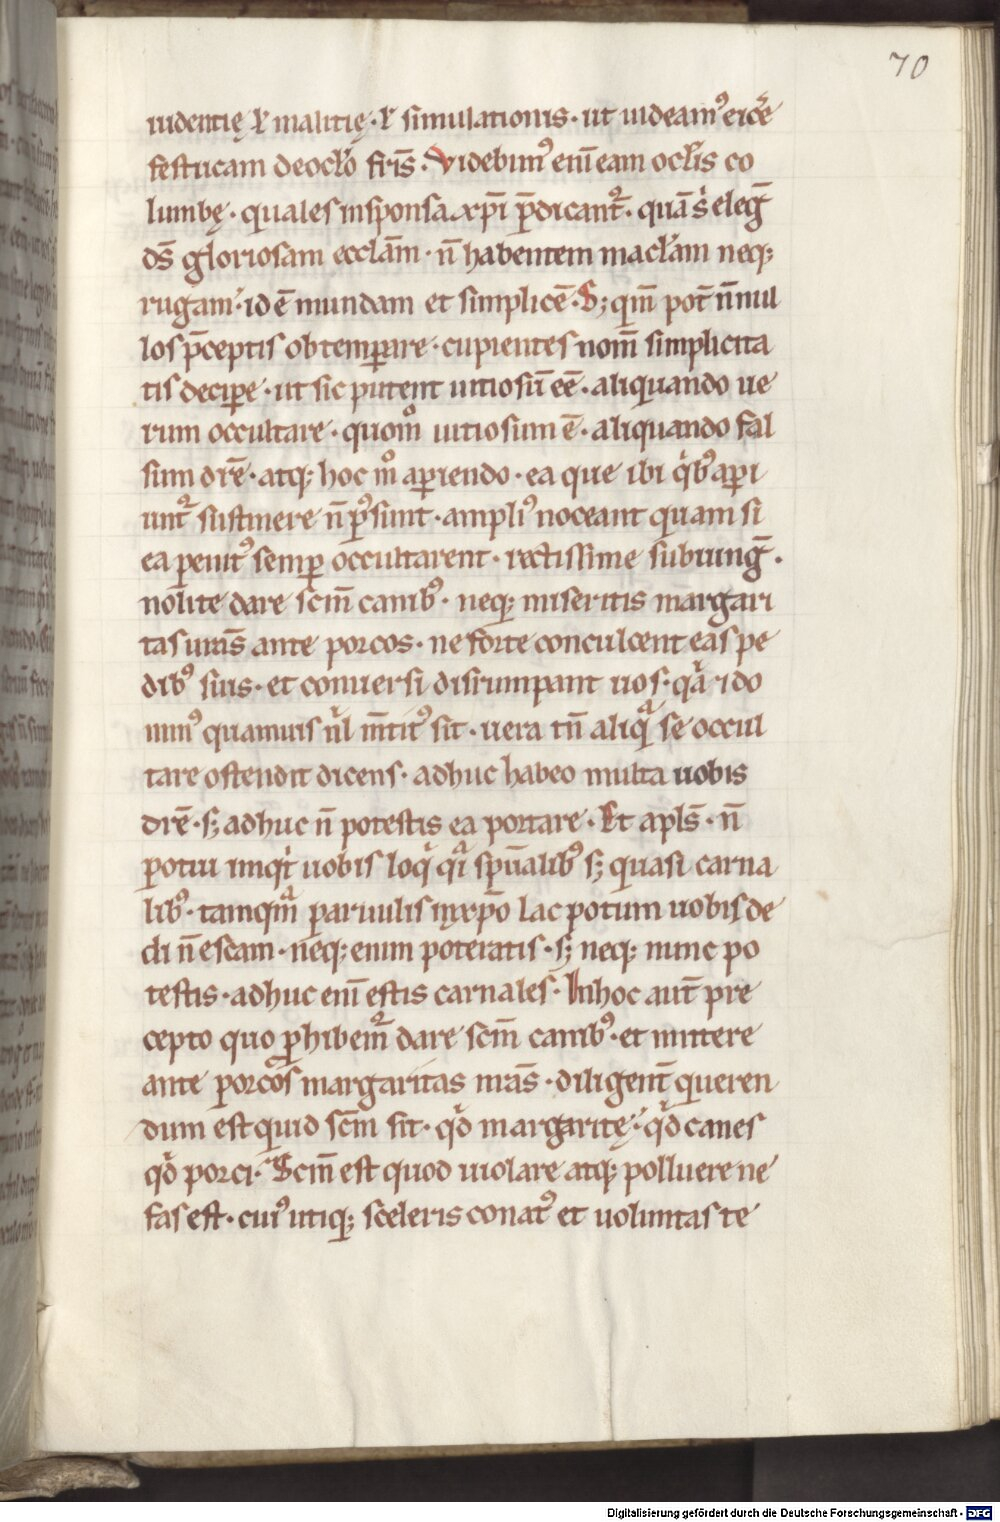 70
uidentię ł malitię · ł simulationis · ut uideam᷒ eicẽ
festucam de oclo fris̄ · Videbim᷒ eni̅ eam oclis co
lumbę · quales in sponsa xp̄i p̄dicant᷑ · quā s̉ eleḡ
ds̄ gloriosam eccla̅m · n̄ habentem macłam neq;
rugam · id ē mundam et simplicē · S; qm̄ pot̄ n̄nul
los p̄ceptis obtemꝑare · cupientes nom̄ simplicita
tis deciꝑe · ut sic putent uitiosū eē · aliquando ue
rum occultare · quom̊ uitiosum ē · aliquando fal
sum dr̄e · atq; hoc m̊ aꝑiendo · ea que ibi q̉b᷒ aꝑi
unt᷑ sustinere n̄ p᷒sunt · ampli᷒ noceant quam si
ea penit᷒ semꝑ occultarent · rectissime subiung̅ ·
nolite dare scm̄ canib᷒ · neq; miseritis margari
tas urās ante porcos · ne forte conculcent eas pe
dib᷒ suis · et conuersi disrumpant uos · qͣ ⁊ do
min᷒ quamuis nl̉ m̄tit᷒ sit · uera tn̄ aliqͣ se occul
tare ostendit dicens · adhuc habeo multa uobis
dr̄e · s; adhuc n̄ potestis ea portare · Et apls̄ · n̄
potui inqt̉ uobis loq̉ qͣi spu̅alib᷒ s; quasi carna
lib᷒ · tamqm̄ͣ paruulis in xp̄o lac potum uobis de
di n̄ escam · neq; enim poteratis · s; neq; nunc po
testis · adhuc eni̅ estis carnales · In hoc aut̄ pre
cepto quo ꝓhibem᷑ dare scm̄ canib᷒ · et mittere
ante porcos margaritas nrās · diligent̄ queren
dum est quid scm̄ sit · qd̉ margaritę · qd̉ canes
qd̉ porci · Scm̄ est quod uiolare atq; polluere ne
fas est · cui᷒ utiq; sceleris conat᷒ et uoluntas te
Digitalisierung gefördert durch die Deutsche Forschungsgemeinschaft - DFG